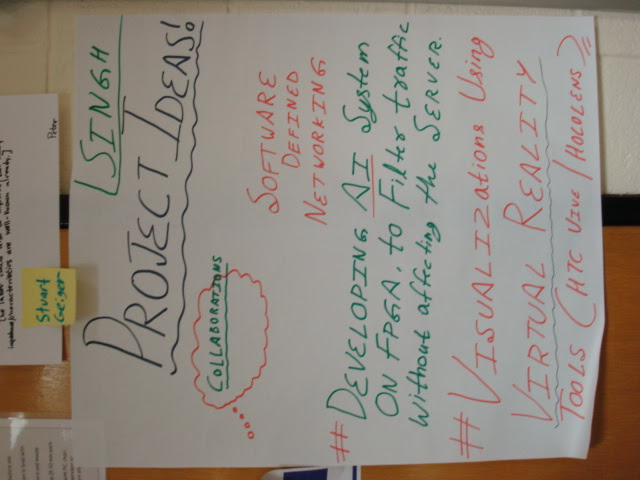 impedance/characteristics are well-known already.]
Peter
Stuart
Geiger
SINGH
PROJECT IDEAS!
COLLABORATIONS
SOFTWARE
DEFINED
NETWORKING
# DEVELOPING AI System
ON FPGA, to Filter traffic
Without affecting the SERVER.
# VISUALIZations Using
VIRTUAL REALITY
TOOLS (HTC VIVE / HOLOLENS)